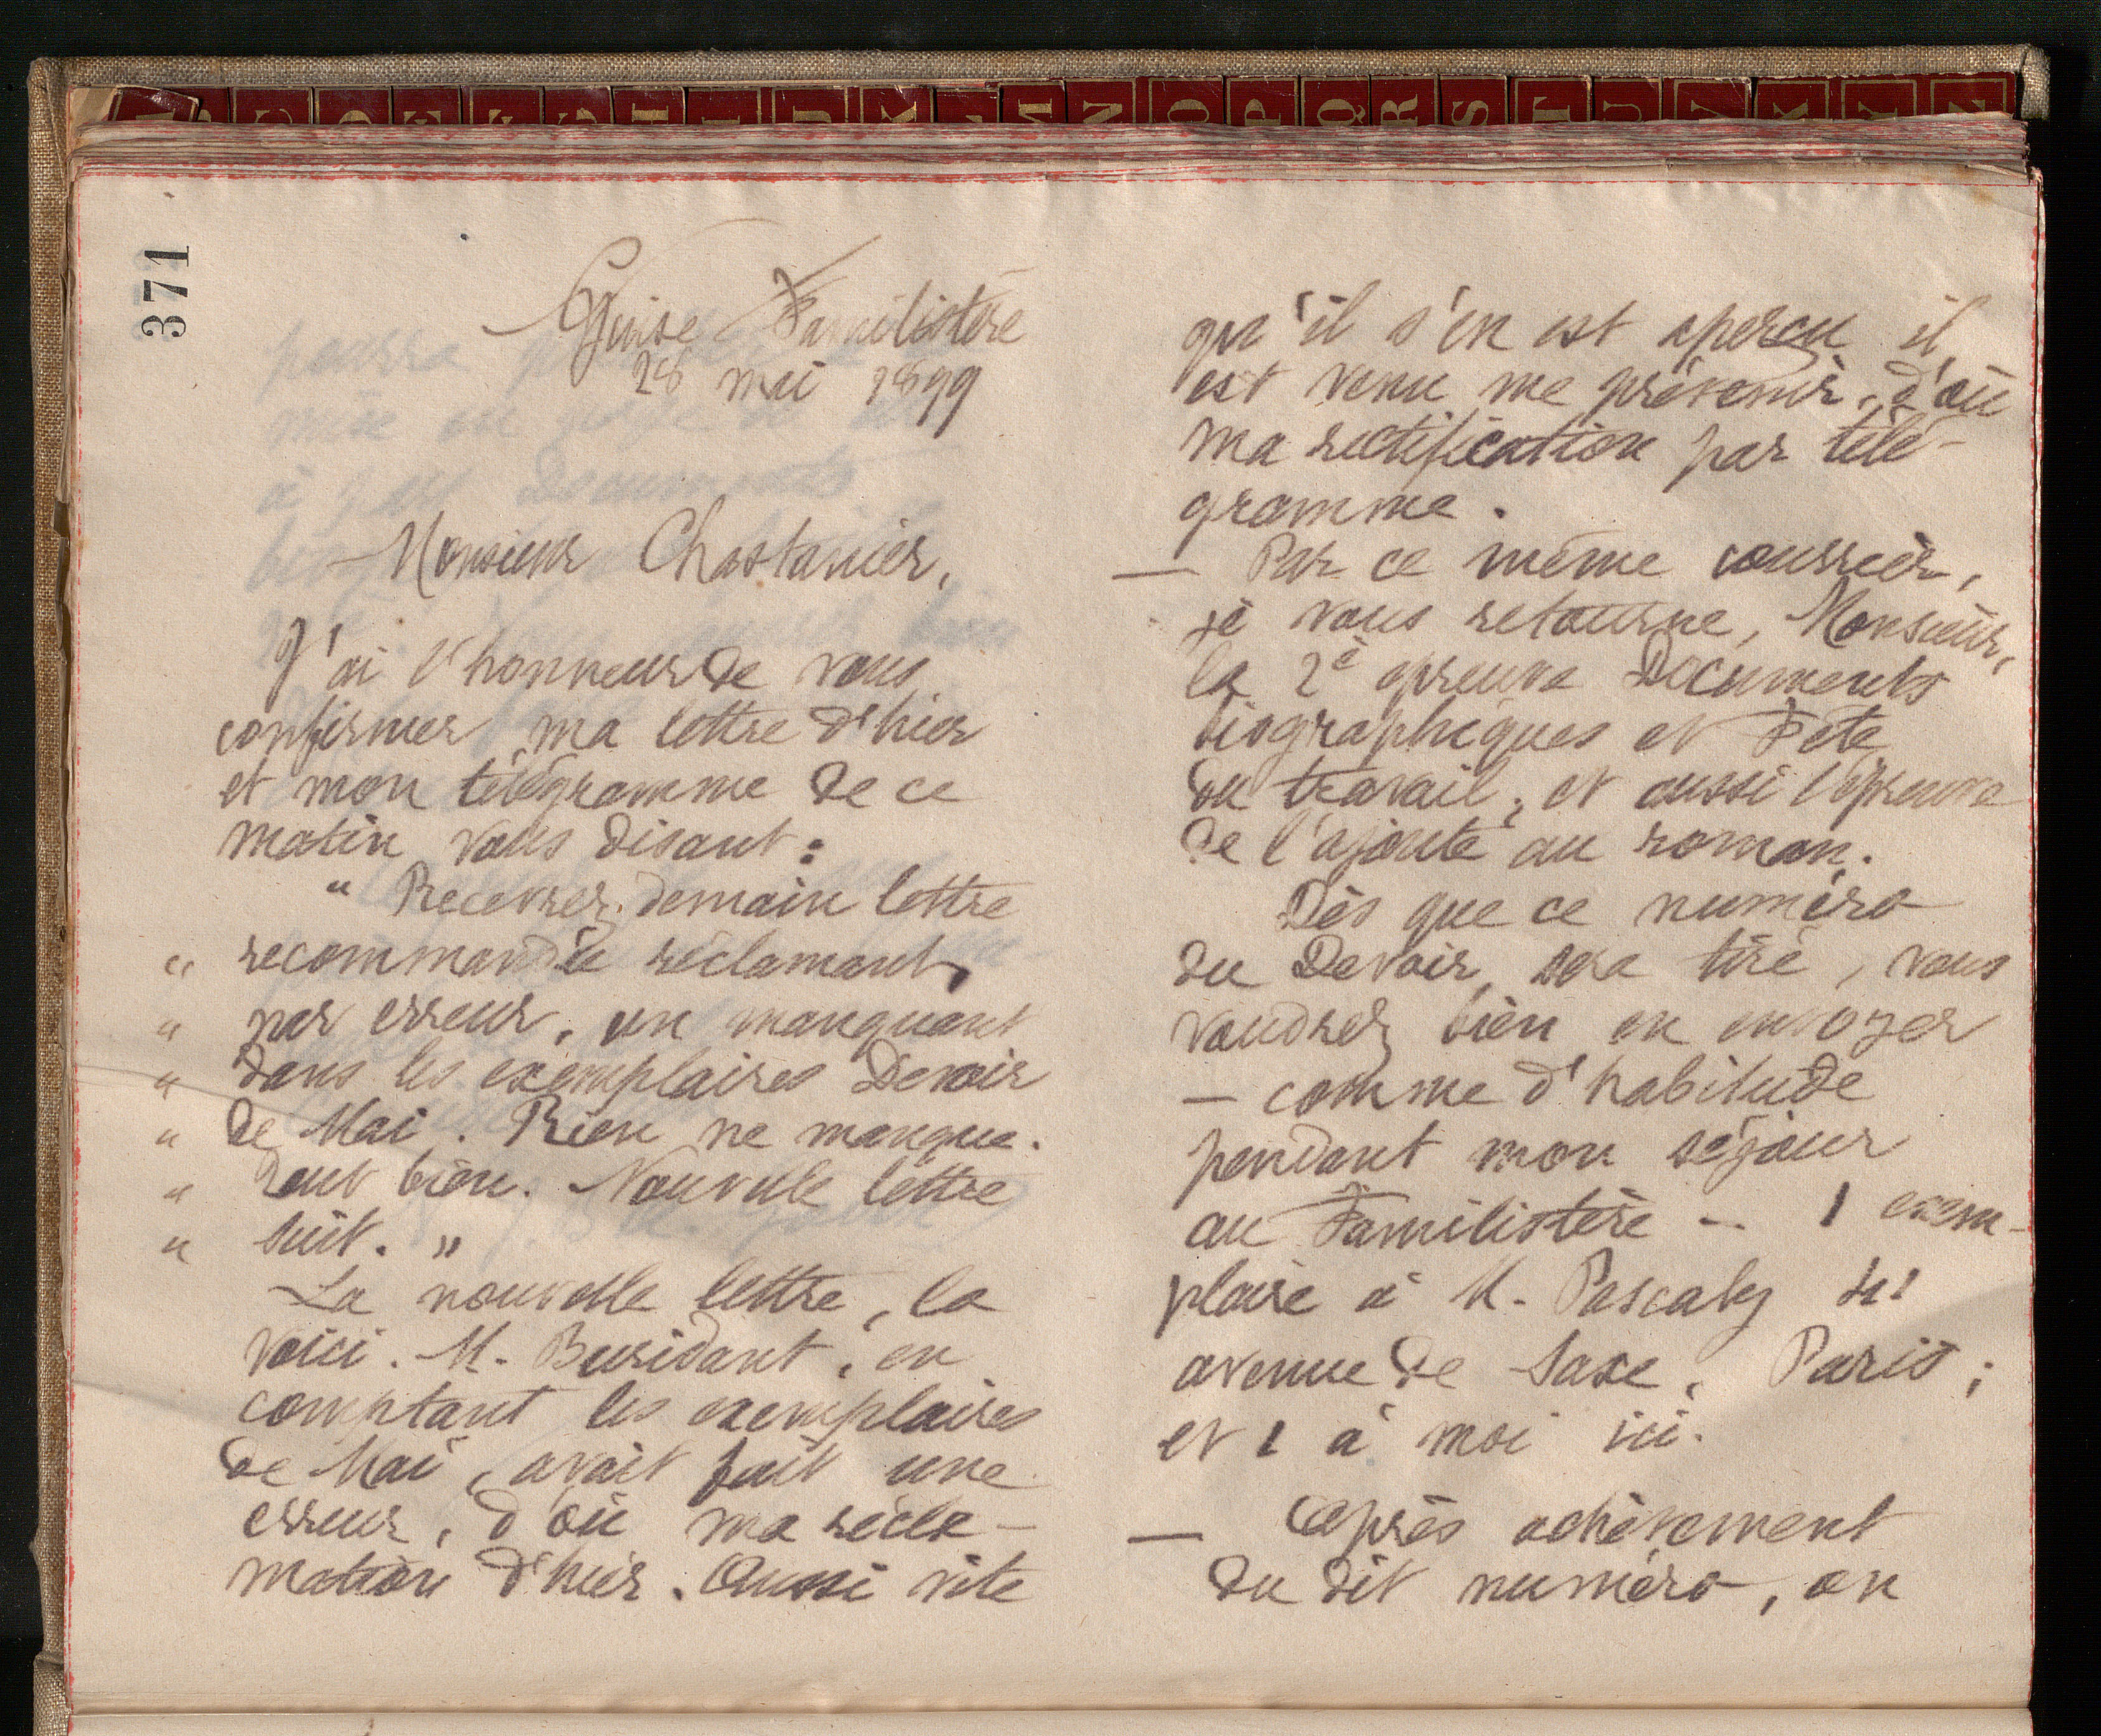 371
Guise Familistère
28 mai 1899
Monsieur Chastanier,
J'ai l'honneur de vous
confirmer ma lettre d'hier
et mon télégramme de ce
matin vous disant :
" Recevrez demain lettre
" recommandée réclamant,
" par erreur, un manquant
" dans les exemplaires Devoir
" de Mai. Rien ne manque.
" Tout bien. Nouvelle lettre
" suit. "
La nouvelle lettre, la
voici. M. Buridant, en
comptant les exemplaires
de Mai, avait fait une
erreur, d'où ma récla-
mation d'hier. Aussi vite
qu'il s'en est aperçu il
est venu me prévenir, d'où
ma rectification par télé-
gramme.
— Par ce même courrier,
je vous retourne, Monsieur,
la 2e épreuve Documents
biographiques et Fête
du travail, et aussi l'épreuve
de l'ajouté au roman.
Dès que ce numéro
du Devoir sera tiré, vous
voudrez bien en envoyer
— comme d'habitude
pendant mon séjour
au Familistère — 1 exem-
plaire à M. Pascaly
avenue de Saxe, Paris ;
et 1 à moi ici.
— Après achèvement
du dit numéro, on